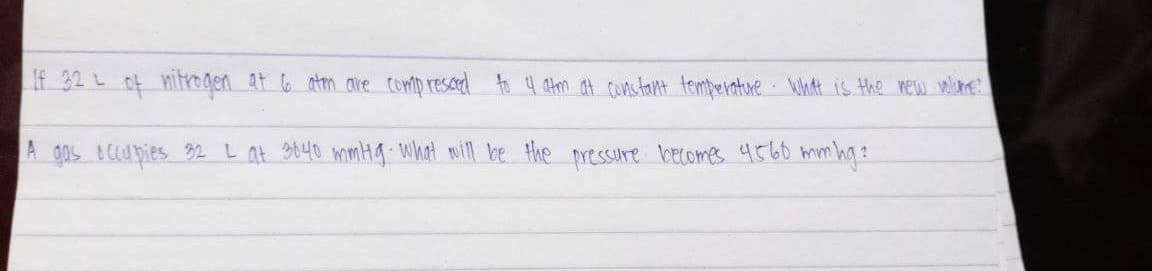 If 32 L of nitrogen at 6 atm are compressed to 4 atm at constant temperature. What is the new volume?
A gas occupies 32 L at 3640 mmHg. What will be the pressure becomes 4560 mmhg?